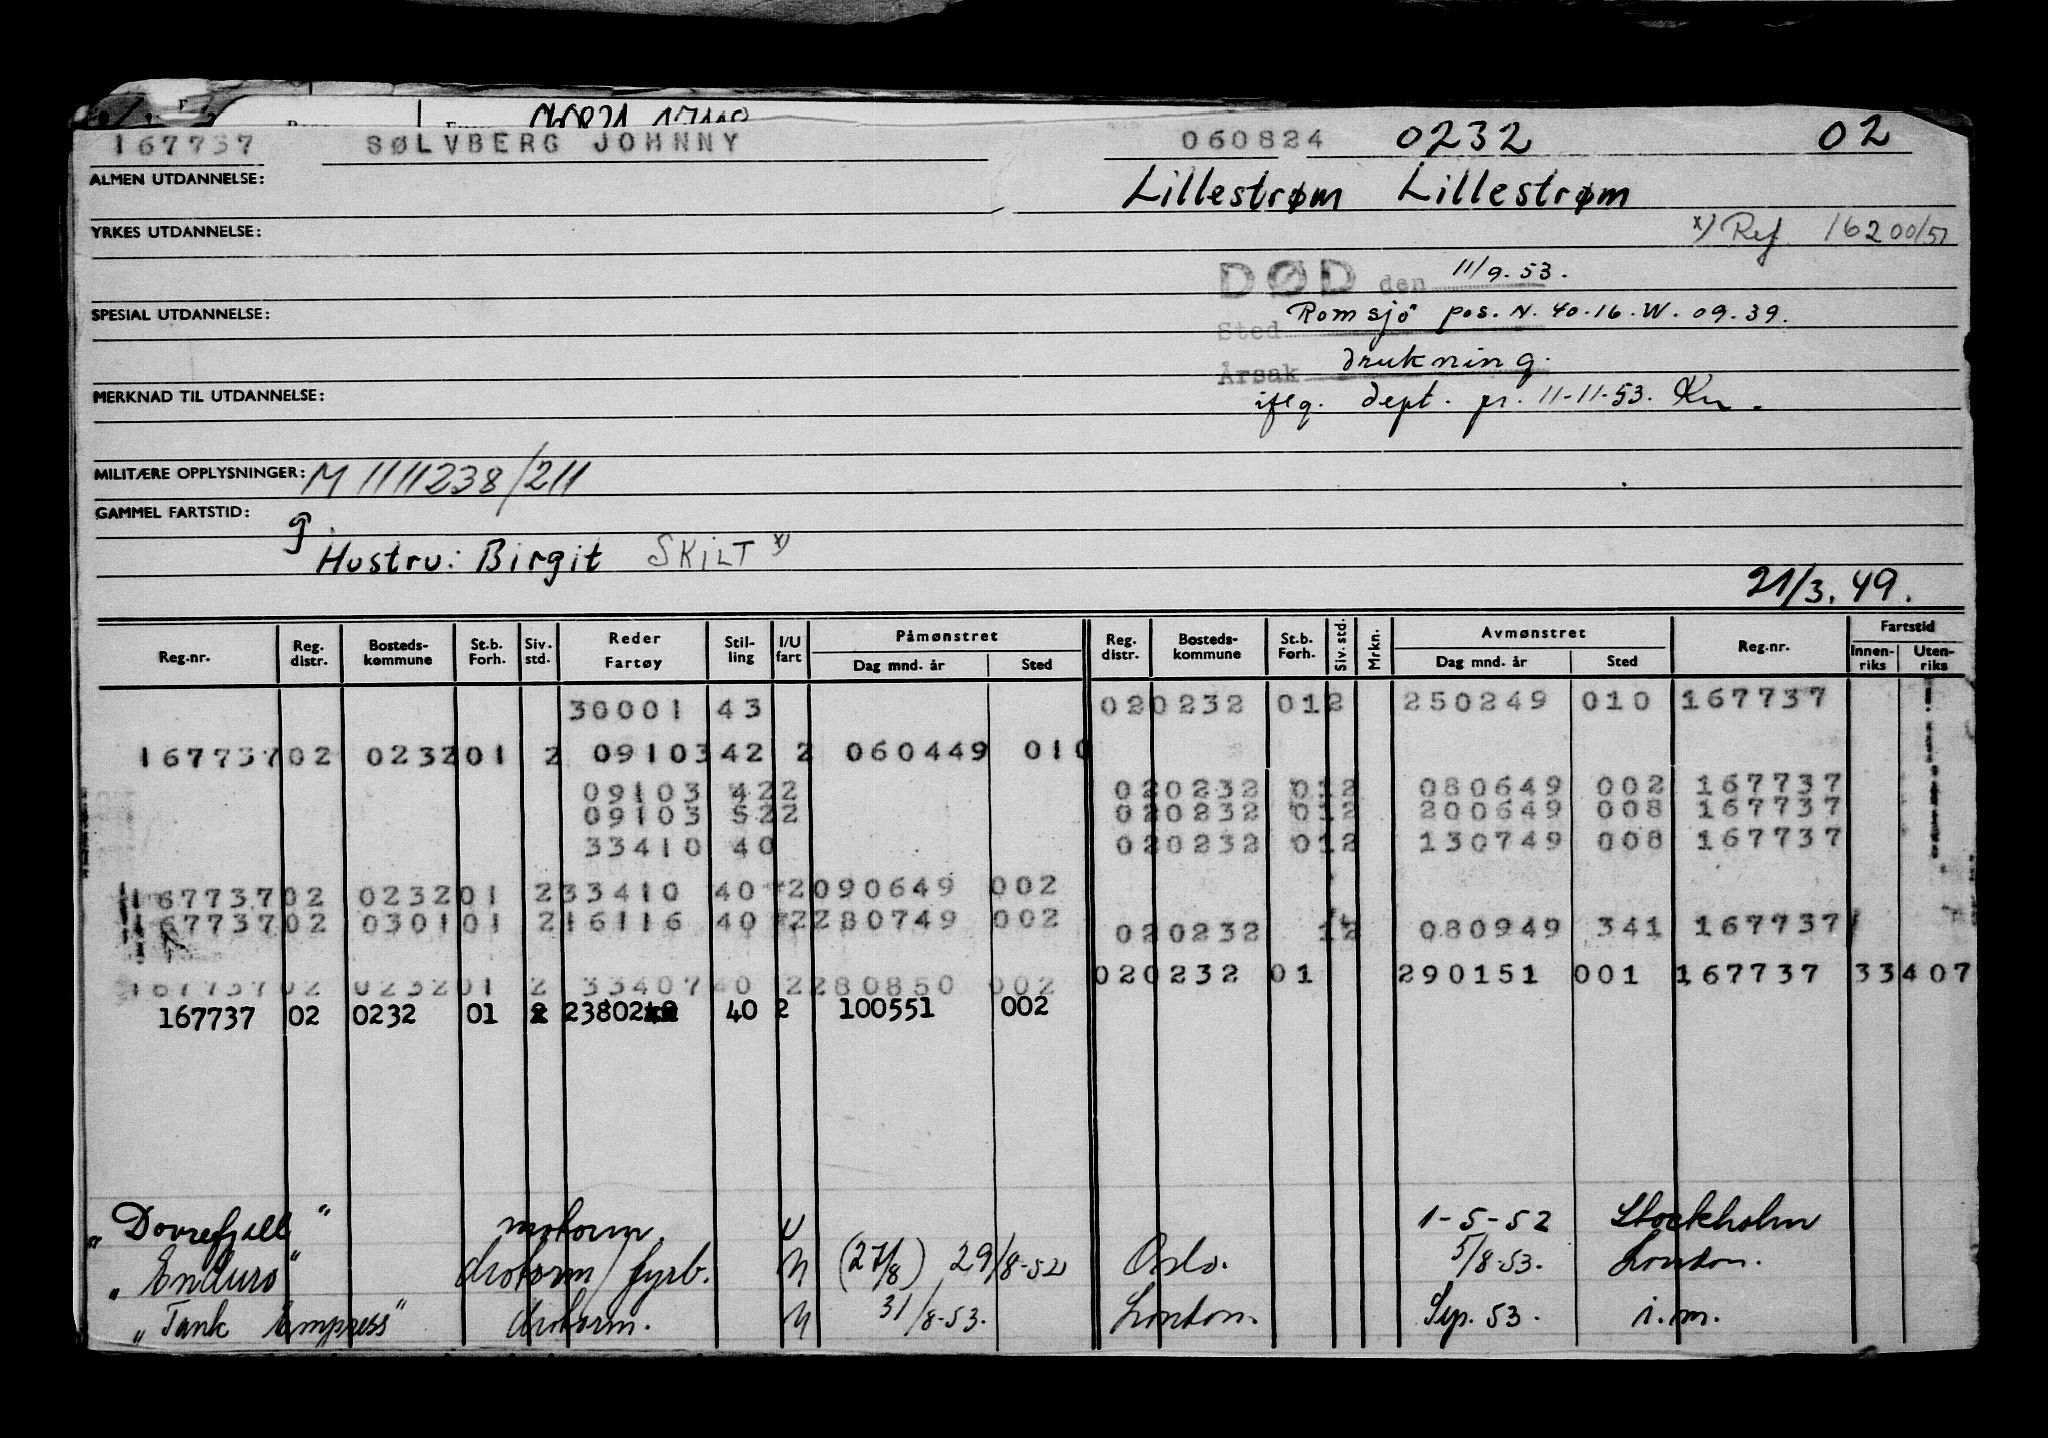 167737 SØLVBERG JOHNNY 060824 0232 02
ALMEN UTDANNELSE: Lillestrøm Lillestrøm
YRKES UTDANNELSE: x) Ref 16200/51
DØD den 11/9.53.
SPESIAL UTDANNELSE: Sted Romsjö pos. N. 40.16. W. 09.39.
Årsak drukning.
MERKNAD TIL UTDANNELSE: iflg. dept. pr. 11-11-53. Kn.
MILITÆRE OPPLYSNINGER: M 1111238/211
GAMMEL FARTSTID:
Hustru: Birgit SKILT x)
21/3. 49.
Reg.nr. Reg. distr. Bosteds-kommune St.b. Forh. Siv. std. Reder Fartøy Stil-ling I/U fart Påmønstret Dag mnd. år Sted Reg. distr. Bosteds-kommune St.b. Forh. Siv. std. Mrkn. Avmønstret Dag mnd. år Sted Reg.nr. Fartstid Innen-riks Uten-riks
30001 43 020232 012 250249 010 167737
167737 02 0232 01 2 09103 42 2 060449 010
09103 422 020232 012 080649 002 167737
09103 522 020232 012 200649 008 167737
33410 40 020232 012 130749 008 167737
167737 02 0232 01 2 33410 40 2 090649 002
167737 02 0301 01 2 16116 40 2 280749 002 020232 12 080949 341 167737
167737 02 0232 01 2 33407 40 2 280850 002 020232 01 290151 001 167737 33407
167737 02 0232 01 23802 40 2 100551 002
"Dovrefjell" motorm. U 1-5-52 Stockholm
"Enduro" motorm/fyrb. U (27/8) 29/8-52 Oslo. 5/8-53. London.
"Tank Empress" motorm. U 31/8-53. London. Sep. 53. i.m.